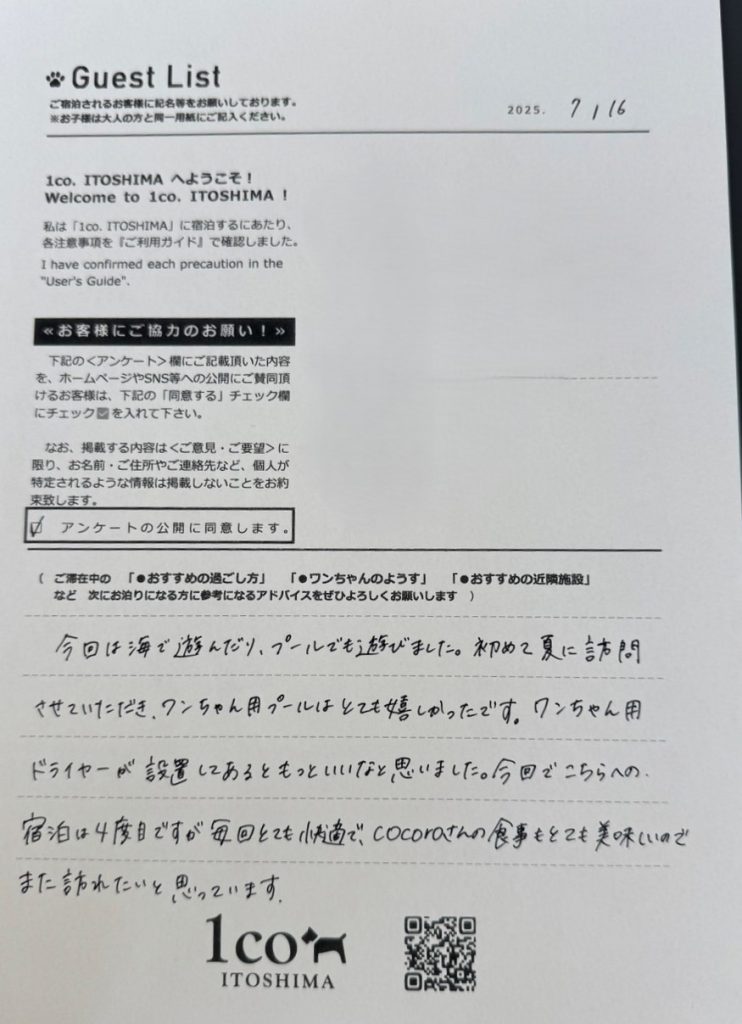 Guest List
ご宿泊されるお客様に記名等をお願いしております。
※お子様は大人の方と同一用紙にご記入ください。
2025. 7 / 16
1co. ITOSHIMA へようこそ！
Welcome to 1co. ITOSHIMA !
私は「1co. ITOSHIMA」に宿泊するにあたり、
各注意事項を『ご利用ガイド』で確認しました。
I have confirmed each precaution in the
"User's Guide".
≪お客様にご協力のお願い！≫
下記の＜アンケート＞欄にご記載頂いた内容
を、ホームページやSNS等への公開にご賛同頂
けるお客様は、下記の「同意する」チェック欄
にチェック☑を入れて下さい。
なお、掲載する内容は＜ご意見・ご要望＞に
限り、お名前・ご住所やご連絡先など、個人が
特定されるような情報は掲載しないことをお約
束致します。
☑ アンケートの公開に同意します。
（ ご滞在中の 「●おすすめの過ごし方」 「●ワンちゃんのようす」 「●おすすめの近隣施設」
など 次にお泊りになる方に参考になるアドバイスをぜひよろしくお願いします ）
今回は海で遊んだり、プールでも遊びました。初めて夏に訪問
させていただき、ワンちゃん用プールはとても嬉しかったです。ワンちゃん用
ドライヤーが設置してあるともっといいなと思いました。今回でこちらへの
宿泊は4度目ですが毎回とても快適で、cocoraさんの食事もとても美味しいので
また訪れたいと思っています。
1co
ITOSHIMA